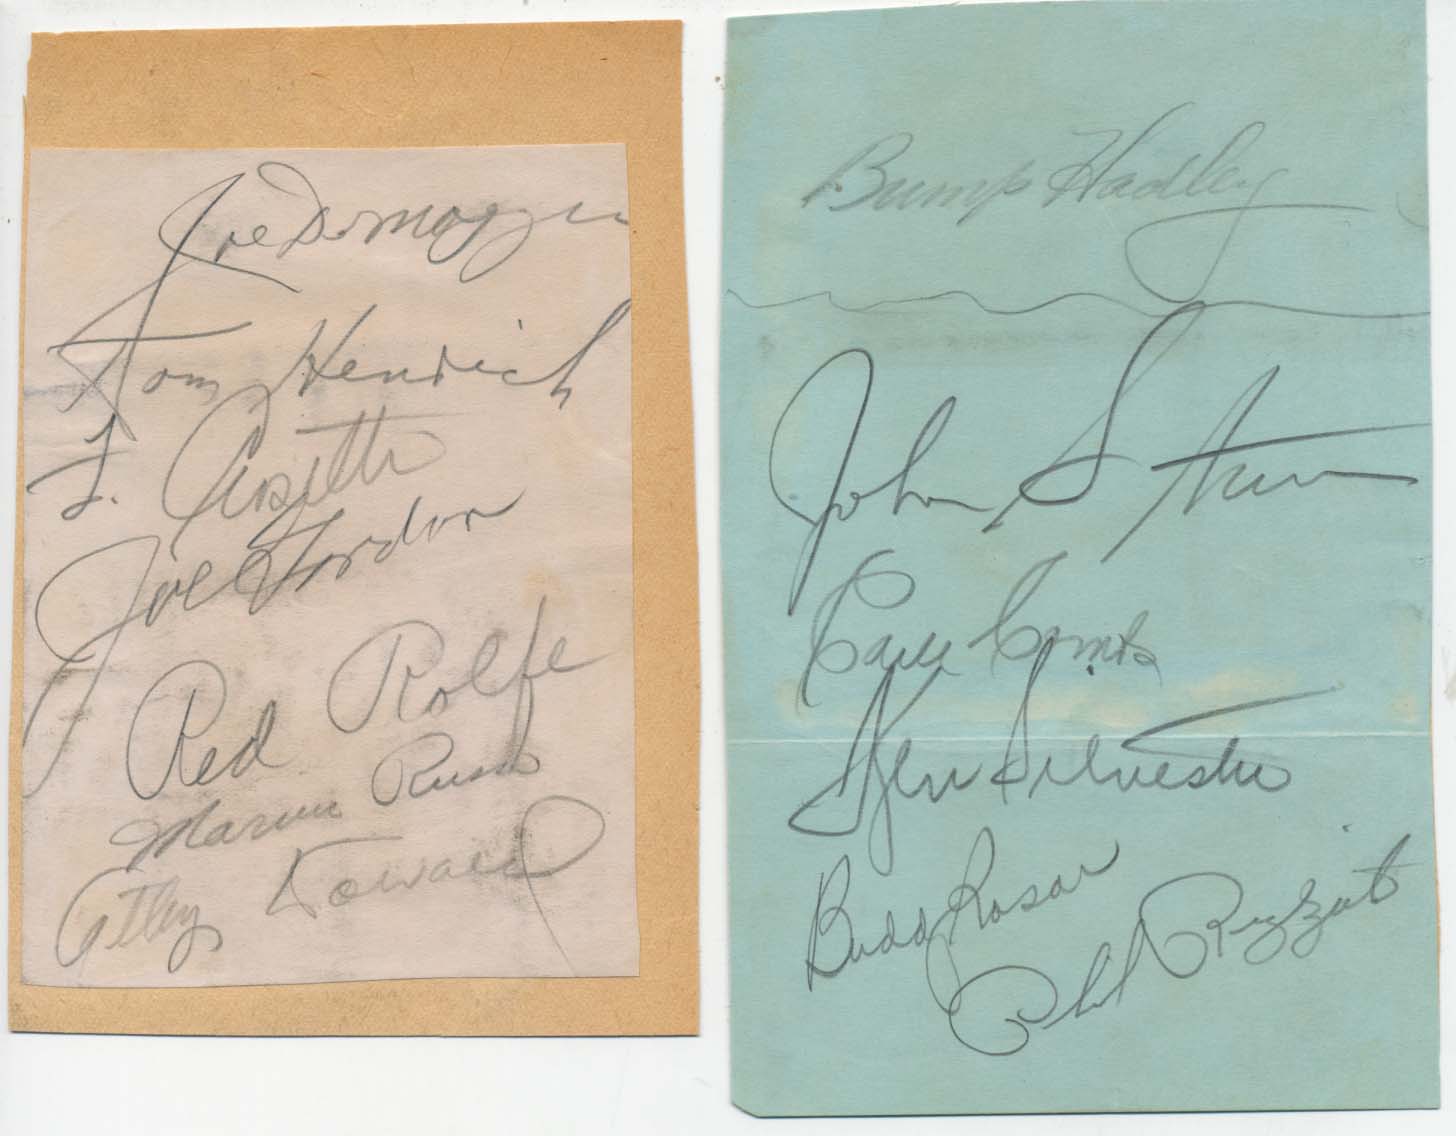 Joe DiMaggio
Tom Henrich
F. Crosetti
Joe Gordon
Red Rolfe
Marius Russo
Atley Donald
Bump Hadley
John Sturm
Earle Combs
Ken Silvestri
Buddy Rosar
Phil Rizzuto